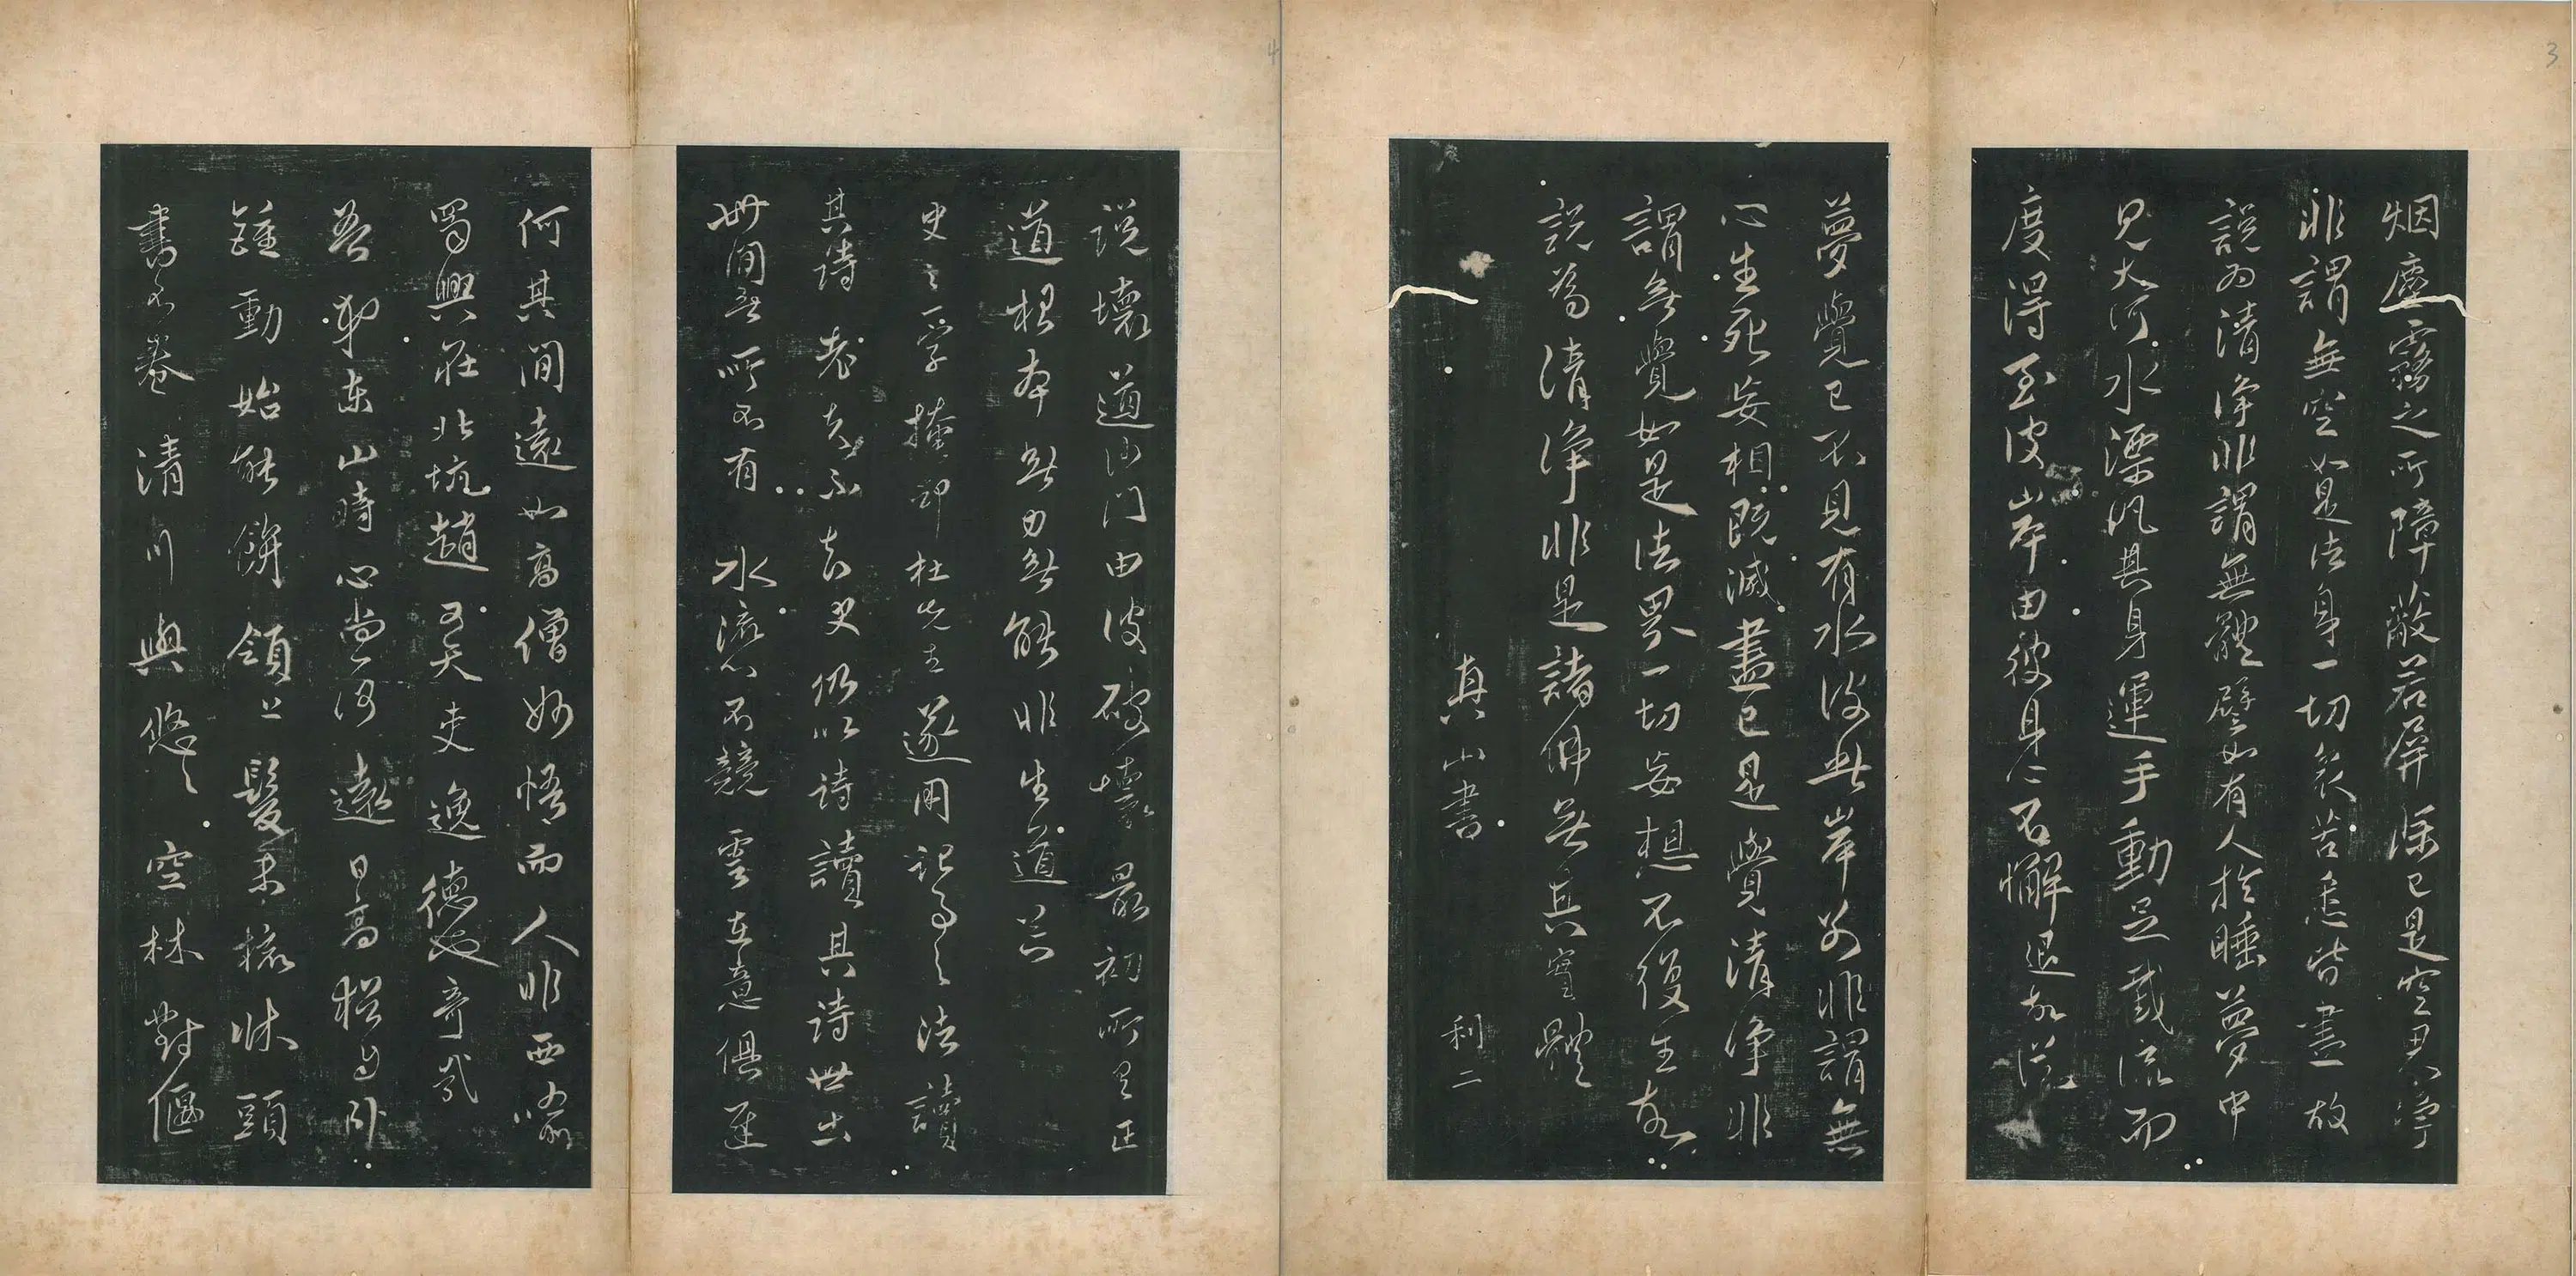 烟塵雲霧之所障蔽若屏除已是空界淨
非謂無空如是法身一切衆苦悉皆盡故
說為清淨非謂無體譬如有人於睡夢中
見大河水漂汎其身運手動足截流而
度得至彼岸由彼身心不懈退故從
夢覺已不見有水彼此岸別非謂無
心生死妄相既滅盡已是覺清淨非
謂無覺如是法界一切妄想不復生故
說為清淨非是諸佛無其實體
真山書
利二
說壞道沙門由彼破壞最初所呈正
道根本無力無能非生道
史之學掩卻杜先生遂用記事之法讀
其詩老夫不知史仍以詩讀其詩世出
世間無所不有 水流心不競 雲在意俱遲
何其閒遠如高僧妙悟而人非西
蜀興 北坑趙 又 夫 逸德也奇 
 東山時心尚 遠日高 卧
鍾動始能 領上髮未梳休頭
書不卷 清川與悠々 空林對偃
3
4